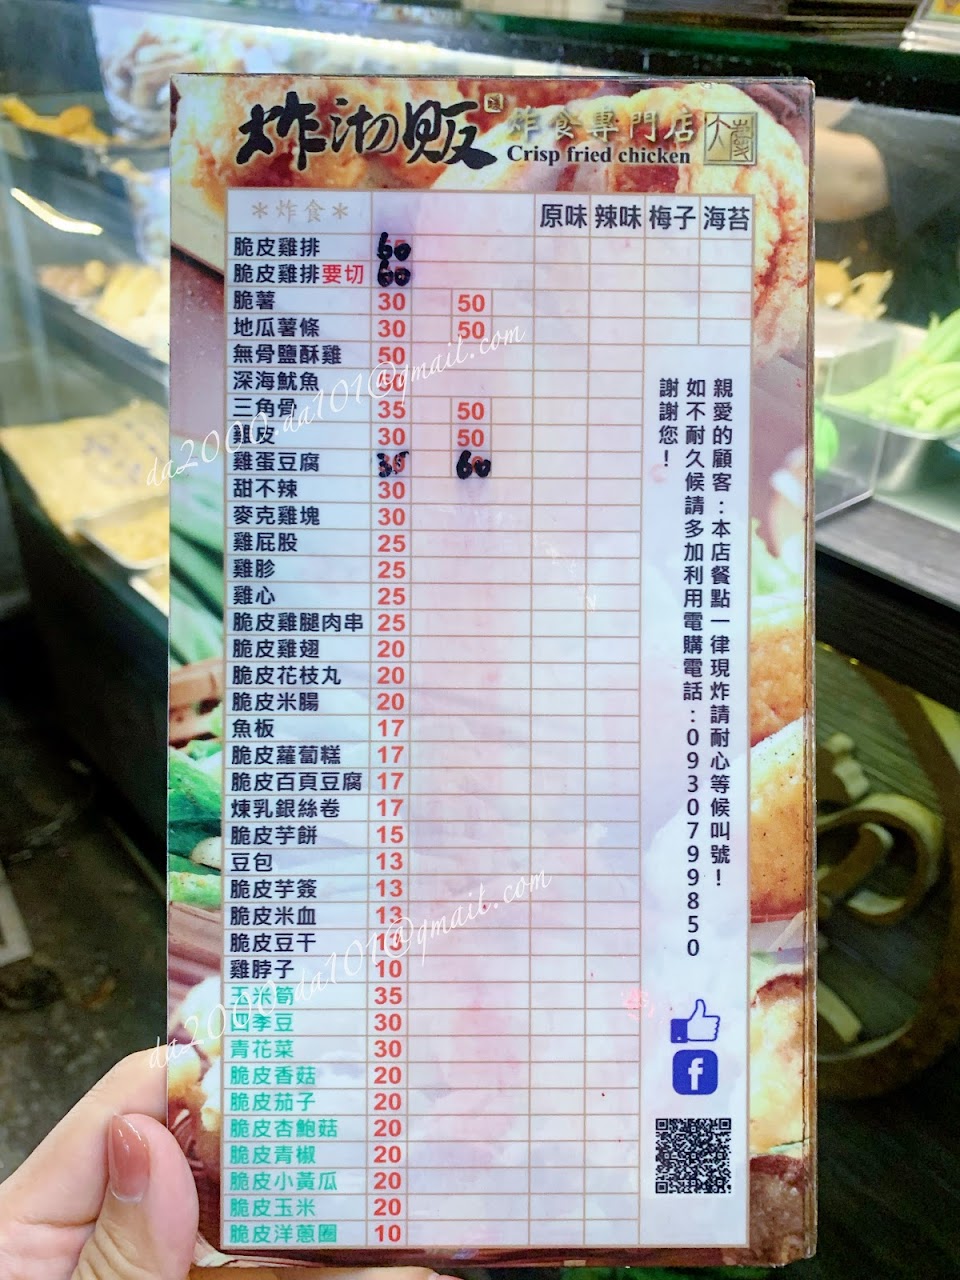 炸沏販 炸食專門店 大慶
Crisp fried chicken
＊炸食＊ 原味 辣味 梅子 海苔
脆皮雞排 60
脆皮雞排要切 60
脆薯 30 50
地瓜薯條 30 50
無骨鹽酥雞 50
深海魷魚 50
三角骨 35 50
雞皮 30 50
雞蛋豆腐 35 60
甜不辣 30
麥克雞塊 30
雞屁股 25
雞胗 25
雞心 25
脆皮雞腿肉串 25
脆皮雞翅 20
脆皮花枝丸 20
脆皮米腸 20
魚板 17
脆皮蘿蔔糕 17
脆皮百頁豆腐 17
煉乳銀絲卷 17
脆皮芋餅 15
豆包 13
脆皮芋簽 13
脆皮米血 13
脆皮豆干 13
雞脖子 10
玉米筍 35
四季豆 30
青花菜 30
脆皮香菇 20
脆皮茄子 20
脆皮杏鮑菇 20
脆皮青椒 20
脆皮小黃瓜 20
脆皮玉米 20
脆皮洋蔥圈 10
親愛的顧客：本店餐點一律現炸請耐心等候叫號！
如不耐久候請多加利用電購電話：0930799850
謝謝您！
da2000.da101@gmail.com
da2000.da101@gmail.com